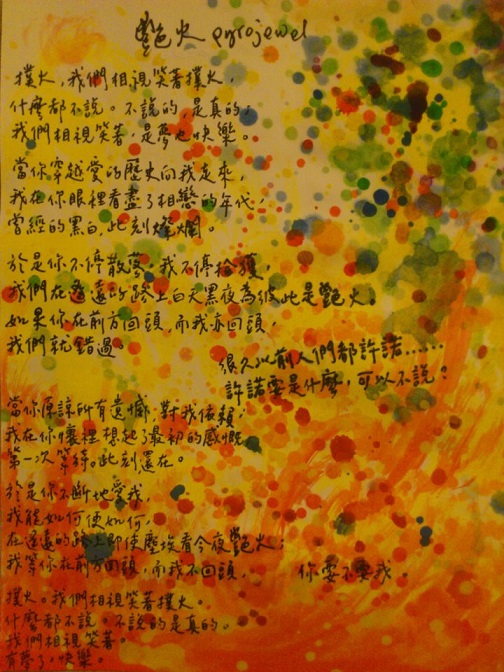 艷火 pyrojewel
撲火,我們相視笑著撲火,
什麼都不說。不說的,是真的;
我們相視笑著,是夢也快樂。
當你穿越愛的歷史向我走來,
我在你眼裡看盡了相戀的年代,
曾經的黑白,此刻燦爛。
於是你不停散落,我不停拾獲,
我們在遙遠的路上白天黑夜為彼此是艷火。
如果你在前方回頭,而我亦回頭,
我們就錯過。
很久以前人們都許諾……
許諾要是什麼,可以不說?
當你原諒所有遺憾,對我依賴,
我在你懷裡想起了最初的感慨
第一次等待。此刻還在。
於是你不斷地愛我,
我能如何便如何,
在遙遠的路上即使塵埃看今夜艷火;
我等你在前方回頭,而我不回頭,
你要不要我。
撲火。我們相視笑著撲火。
什麼都不說。不說的是真的。
我們相視笑著。
有夢了,快樂。